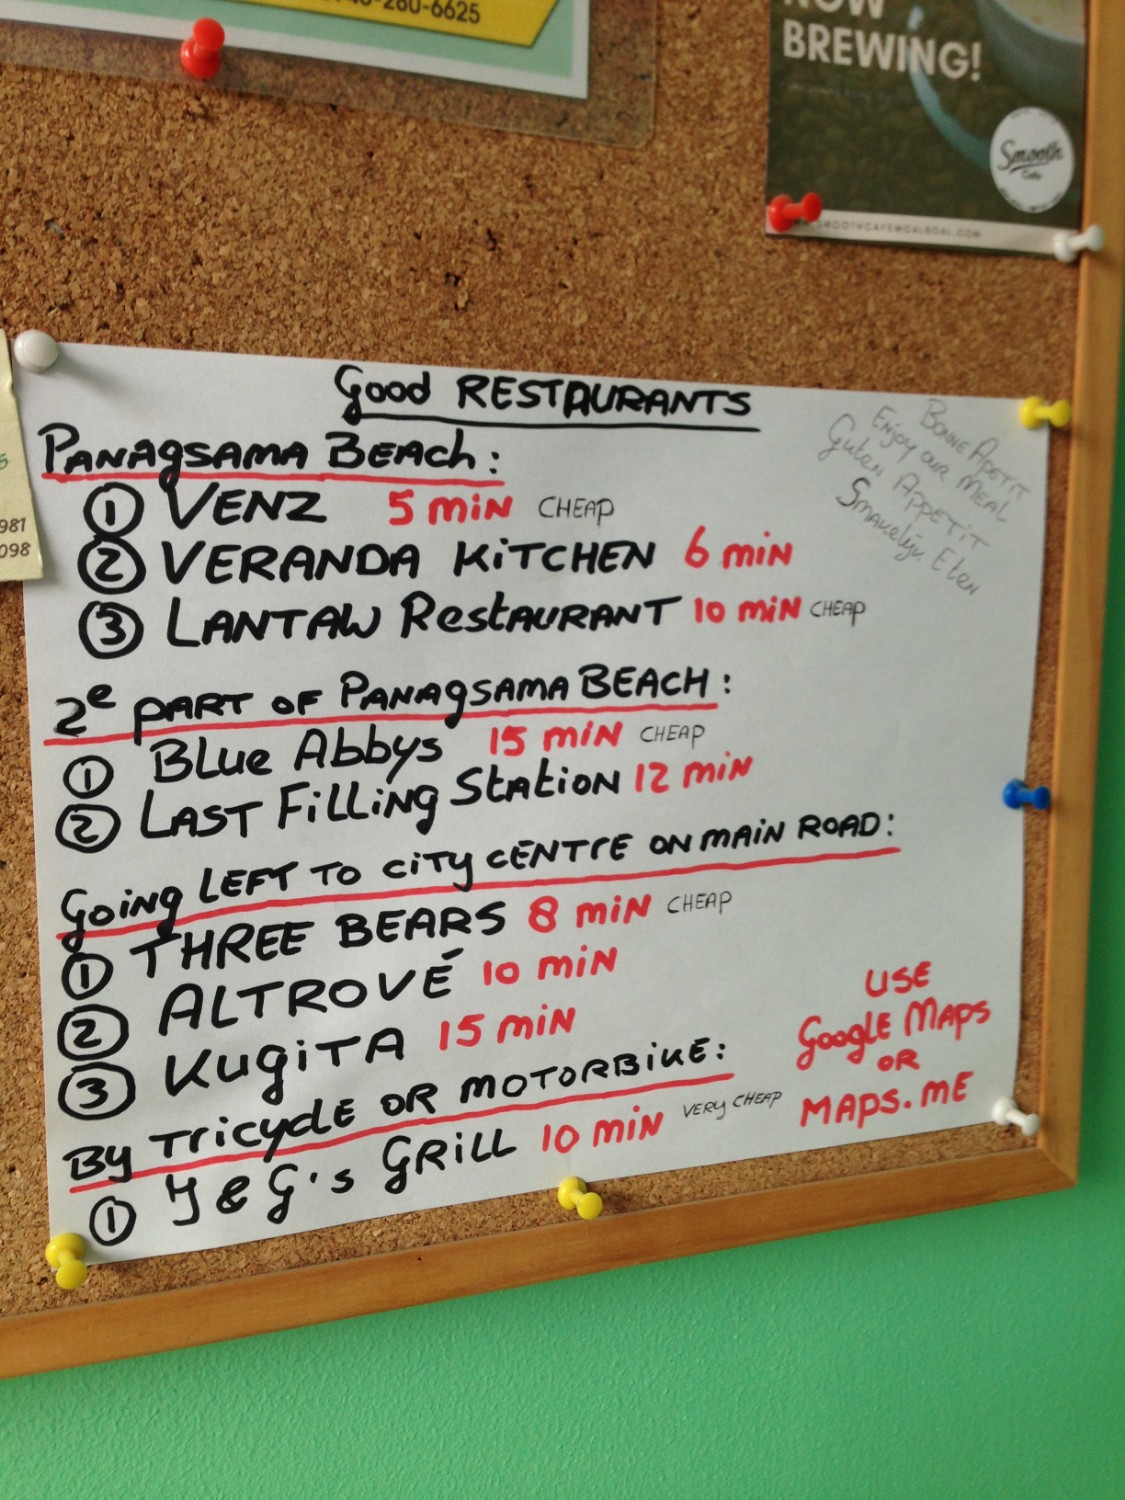 280-6625
NOW
BREWING!
Smooth
Cafe
SMOOTHCAFEMOALBOAL.COM
981
098
Good RESTAURANTS
PANAGSAMA BEACH:
① VENZ 5 MIN CHEAP
② VERANDA KITCHEN 6 MIN
③ LANTAW RESTAURANT 10 MIN CHEAP
BONNE APETIT
ENJOY OUR MEAL
Guten APPETIT
Smakelijk Eten
2e PART OF PANAGSAMA BEACH:
① BLue Abbys 15 MIN CHEAP
② LAST FILLING STATION 12 MIN
Going LEFT TO CITY CENTRE ON MAIN ROAD:
① THREE BEARS 8 MIN CHEAP
② ALTROVÉ 10 MIN
③ KUGITA 15 MIN
BY TRICYCLE OR MOTORBIKE:
① J & G's GRILL 10 MIN VERY CHEAP
USE
GOOGLE MAPS
OR
MAPS.ME